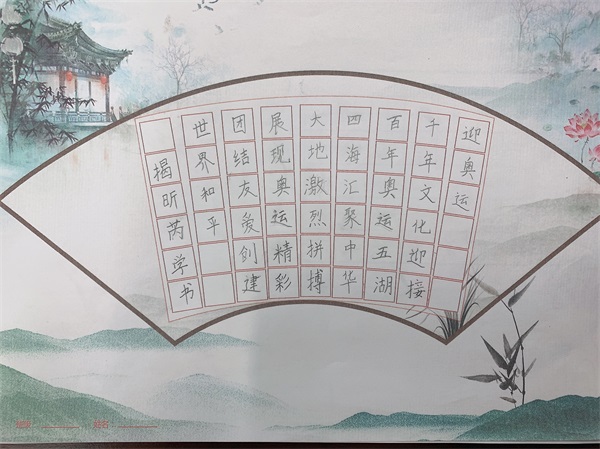 迎奥运
千年文化迎接
百年奥运五湖
四海汇聚中华
大地激烈拼搏
展现奥运精彩
团结友爱创建
世界和平
揭昕芮学书
班级：
姓名：